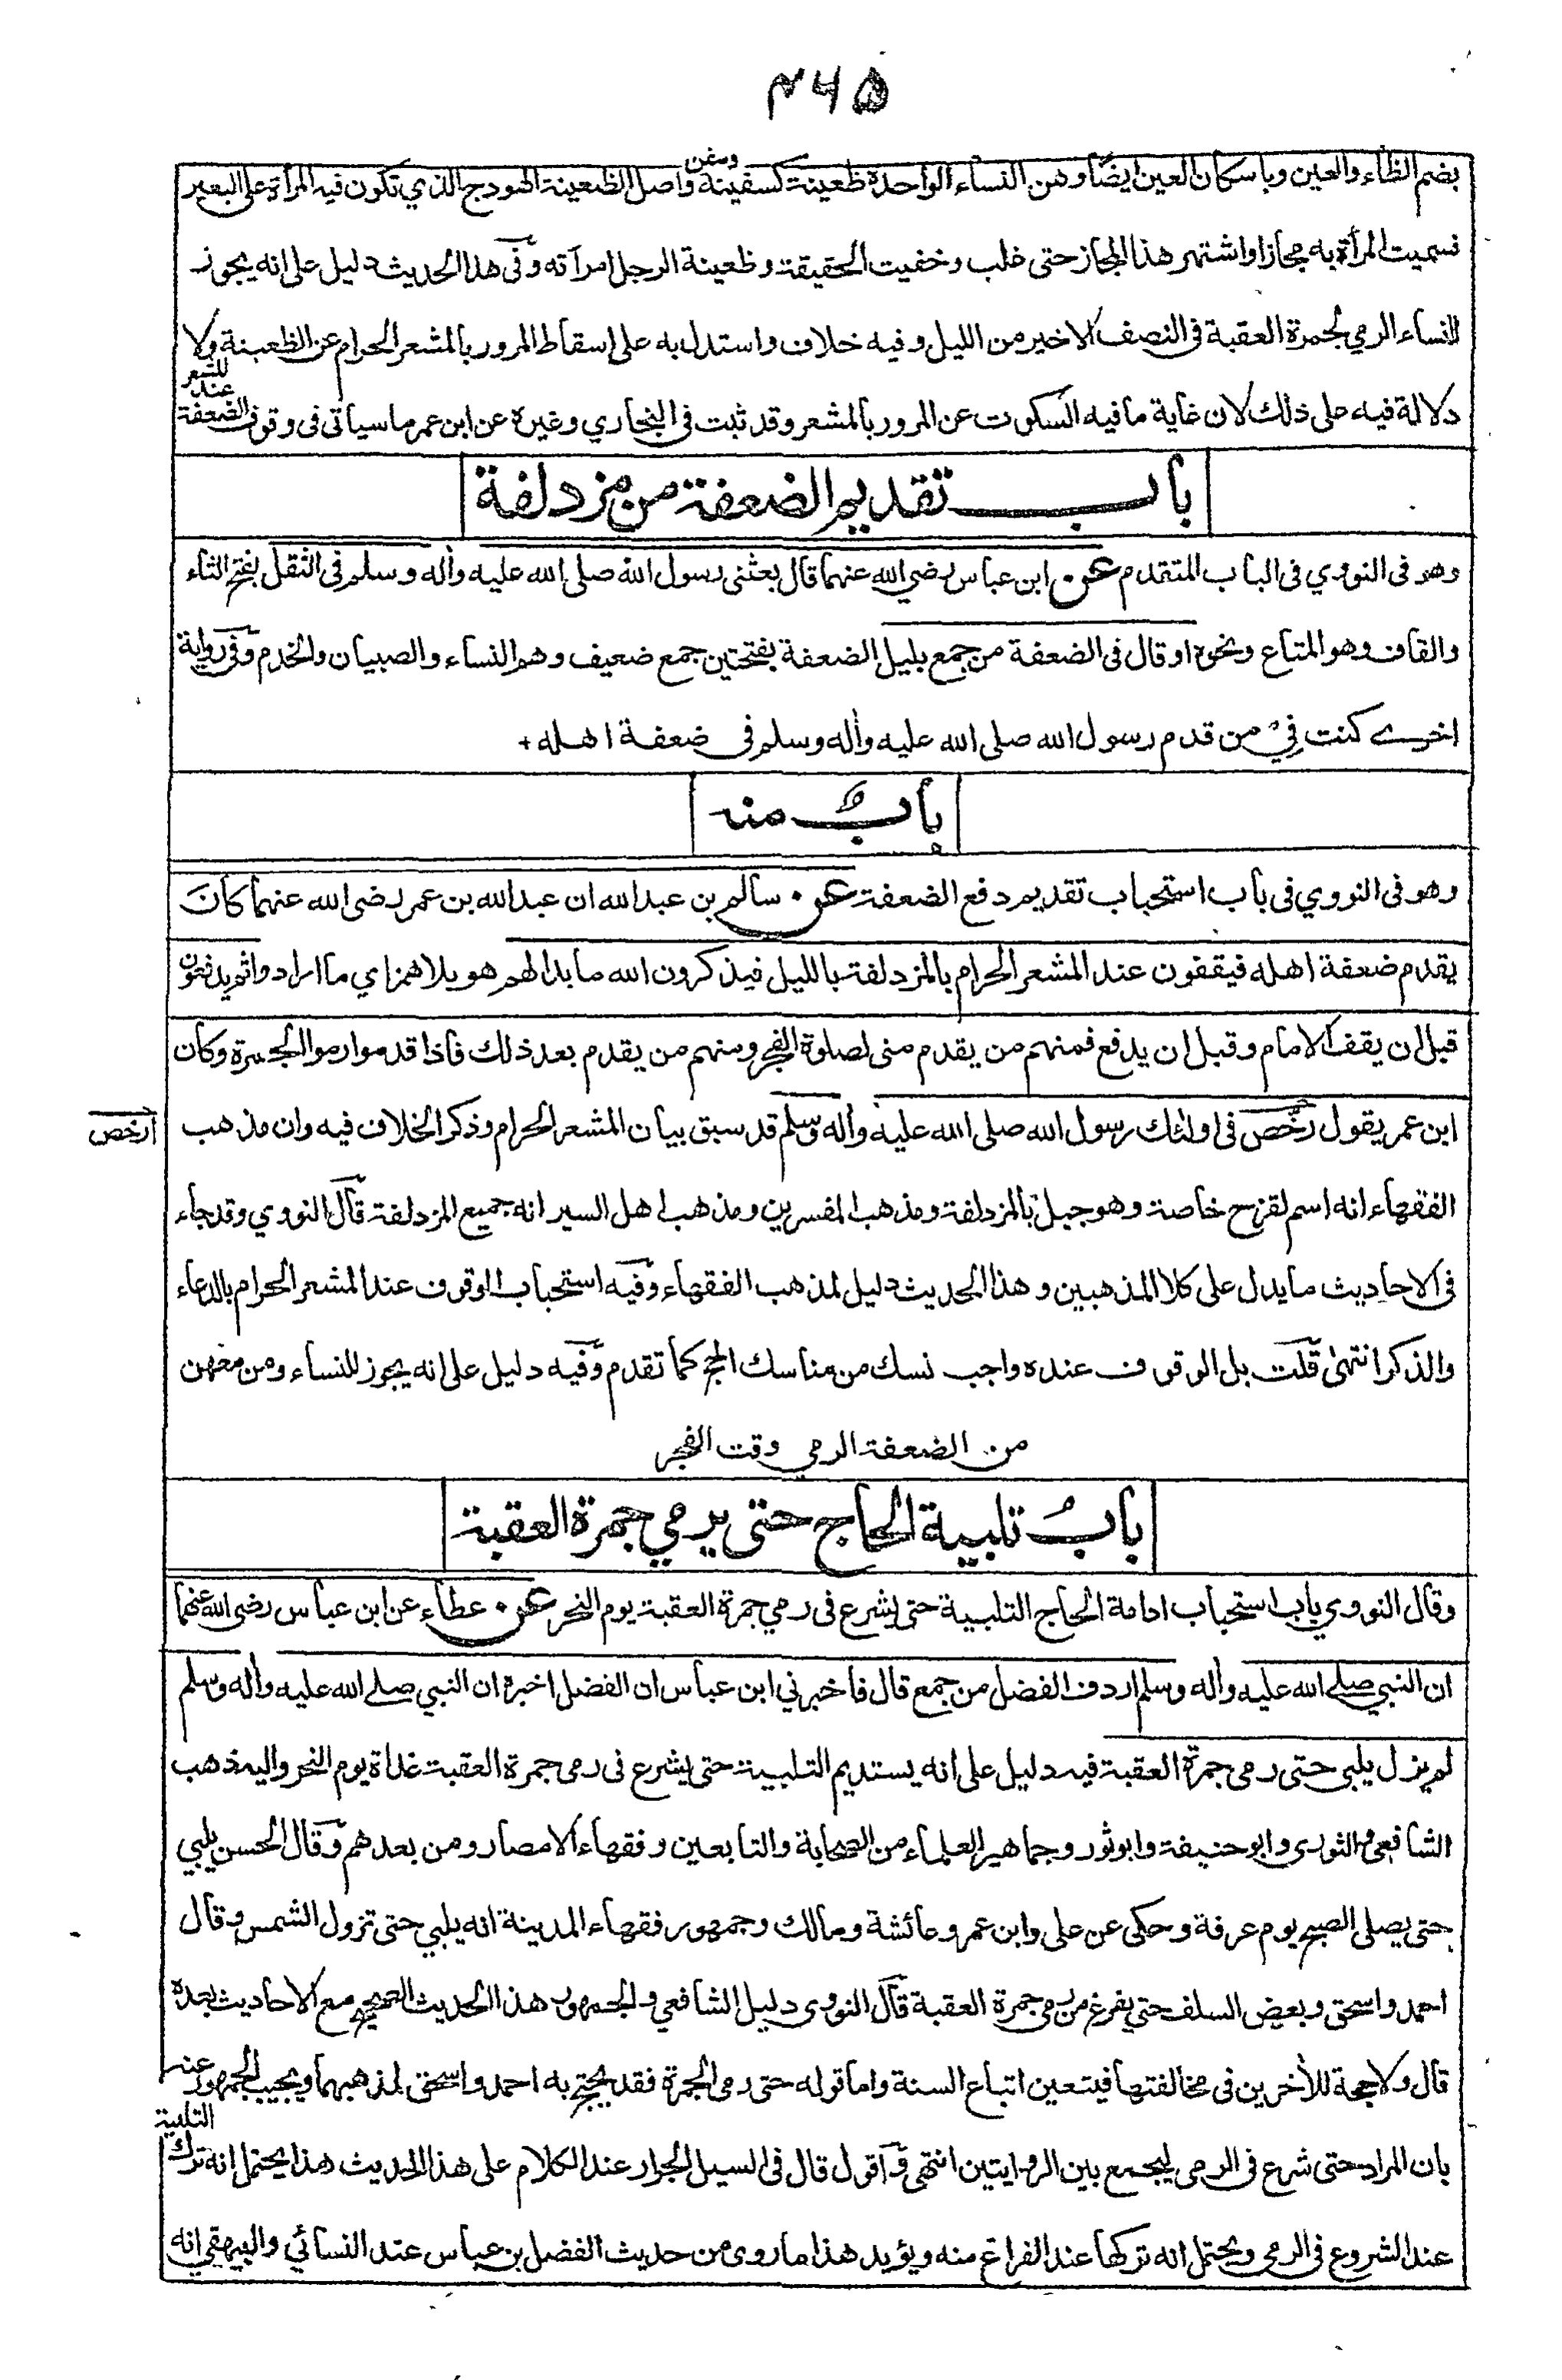 ۴۶۵
بضم الظاء والعين وباسكان العين ايضا وهن النساء الواحدة ظعينة كسفينة واصل الظعينة الهودج الذي تكون فيه المرأة على البعير
فسميت المرأة به مجازا واشتهر هذا المجاز حتى غلب وخفيت الحقيقة وظعينة الرجل امرأته وفى هذا الحديث دليل على انه يجوز
للنساء الرمي لجمرة العقبة فى النصف الاخير من الليل وفيه خلاف واستدل به على اسقاط المرور بالمشعر الحرام عن الظعينة ولا
دلالة فيه على ذلك لان غاية ما فيه السكوت عن المرور بالمشعر وقد ثبت فى البخاري وغيره عن ابن عمر ما سياتى فى وقوف الضعفة عند المشعر
باب تقديم الضعفة من مزدلفة
وهو فى النووي فى الباب المتقدم عن ابن عباس رضي الله عنهما قال بعثنى رسول الله صلى الله عليه وأله وسلم فى الثقل بفتح الثاء
والقاف وهو المتاع ونحوه او قال فى الضعفة من جمع بليل الضعفة بفتحتين جمع ضعيف وهم النساء والصبيان والخدم وفى رواية
اخرے كنت فِيْ من قدم رسول الله صلى الله عليه وأله وسلم فى ضعفة اهله +
بابٌ منه
وهو فى النووي فى باب استحباب تقديم دفع الضعفة عن سالم بن عبد الله ان عبد الله بن عمر رضى الله عنهما كانَ
يقدم ضعفة اهله فيقفون عند المشعر الحرام بالمزدلفة بالليل فيذكرون الله ما بدا لهم هو بلا همز اي ما ارادوا ثم يدفعون
قبل ان يقف الامام وقبل ان يدفع فمنهم من يقدم منى لصلوة الفجر ومنهم من يقدم بعد ذلك فاذا قدموا رموا الجمرة وكان
ابن عمر يقول رخّص فى اولئك رسول الله صلى الله عليه وأله وسلم قد سبق بيان المشعر الحرام وذكر الخلاف فيه وان مذهب
أرخص
الفقهاء انه اسم لقزح خاصة وهو جبل بالمزدلفة ومذهب المفسرين ومذهب اهل السير انه جميع المزدلفة قال النووي وقد جاء
فى الاحاديث ما يدل على كلا المذهبين وهذا الحديث دليل لمذهب الفقهاء وفيه استحباب الوقوف عند المشعر الحرام بالدعاء
والذكر انتهىٰ قلت بل الوقوف عنده واجب نسك من مناسك الحج كما تقدم وفيه دليل على انه يجوز للنساء ومن معهن
من الضعفة الرمي وقت الفجر
بابُ تلبية الحاج حتى يرمي جمرة العقبة
وقال النووي باب استحباب ادامة الحاج التلبية حتى يشرع فى رمي جمرة العقبة يوم النحر عن عطاء عن ابن عباس رضى الله عنهما
ان النبي صلے الله عليه وأله وسلم اردف الفضل من جمع قال فاخبرني ابن عباس ان الفضل اخبره ان النبي صلے الله عليه وأله وسلم
لم يزل يلبى حتى رمى جمرة العقبة فيه دليل على انه يستديم التلبية حتى يشرع فى رمى جمرة العقبة غداة يوم النحر واليه ذهب
الشافعي والثورى وابو حنيفة وابو ثور وجماهير العلماء من الصحابة والتابعين وفقهاء الامصار ومن بعدهم وقال الحسن يلبي
حتى يصلى الصبح يوم عرفة وحكى عن على وابن عمر وعائشة ومالك وجمهور فقهاء المدينة انه يلبي حتى تزول الشمس وقال
احمد واسحق وبعض السلف حتى يفرغ من رمى جمرة العقبة قال النووى دليل الشافعي والجمهور هذا الحديث الصحيح مع الاحاديث بعده
قال ولا حجة للأخرين فى مخالفتها فيتعين اتباع السنة واما قوله حتى رمى الجمرة فقد يحتج به احمد واسحق لمذهبهما ويجيب الجمهور عنه
بان المراد حتى شرع فى الرمى ليجمع بين الروايتين انتهى واقول قال فى السيل الجرار عند الكلام على هذا الحديث هذا يحتمل انه ترك التلبية
عند الشروع فى الرمى ويحتمل انه تركها عند الفراغ منه ويؤيد هذا ما روى من حديث الفضل بن عباس عند النسائي والبيهقي انه